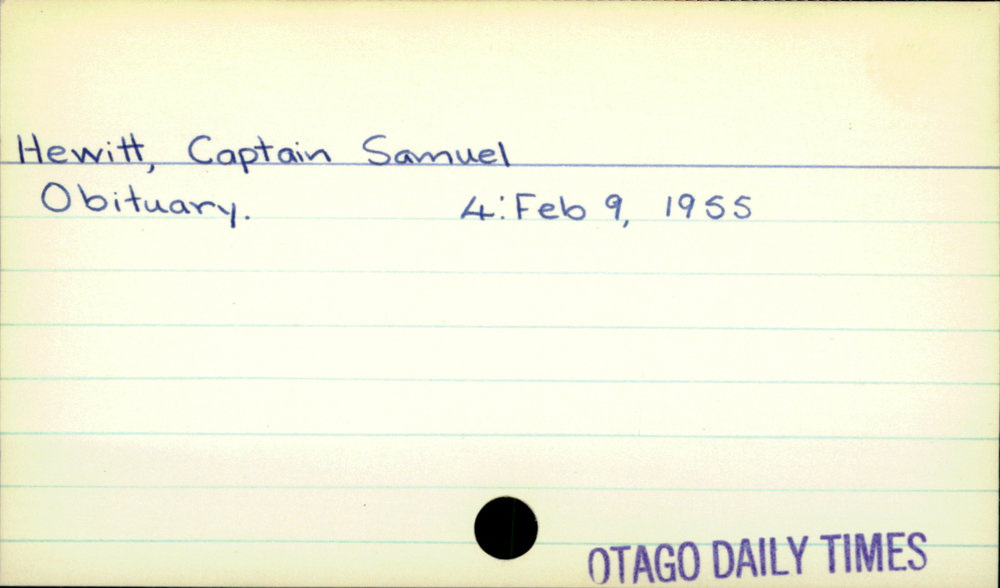 Hewitt, Captain Samuel
Obituary. 4: Feb 9, 1955
OTAGO DAILY TIMES